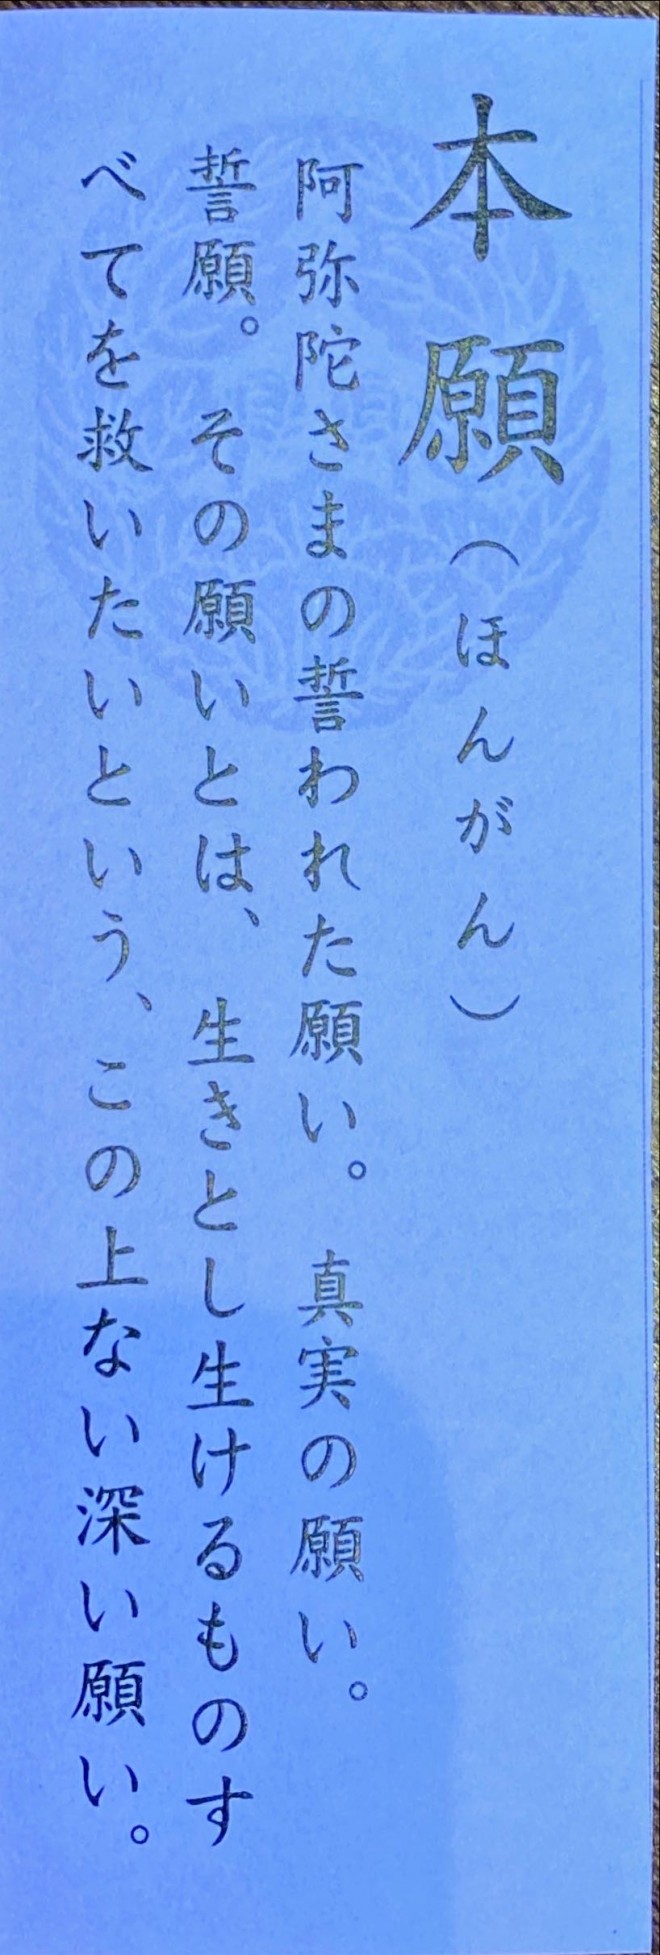 本願(ほんがん)
阿弥陀さまの誓われた願い。真実の願い。
誓願。その願いとは、生きとし生けるものす
べてを救いたいという、この上ない深い願い。